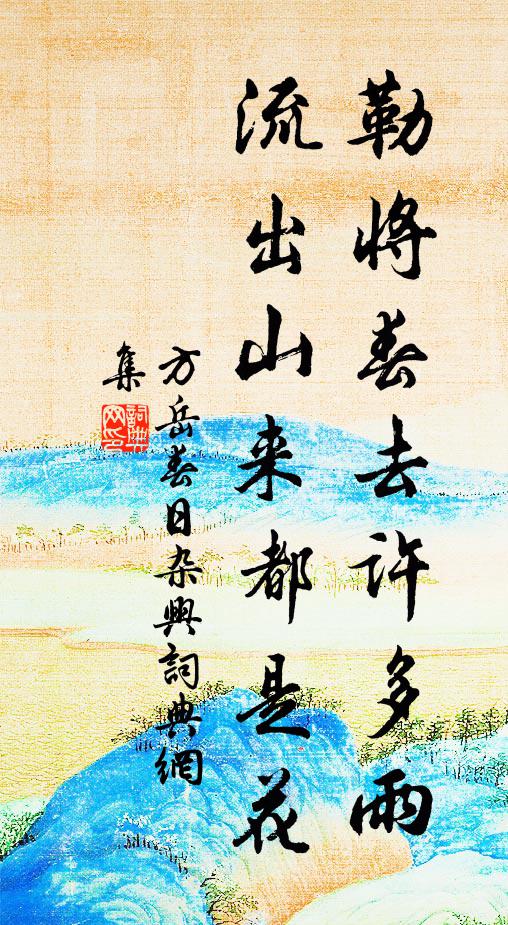 勒將春去許多雨
流出山来都是花
方岳春日杂興詞典網
集
詞典网印